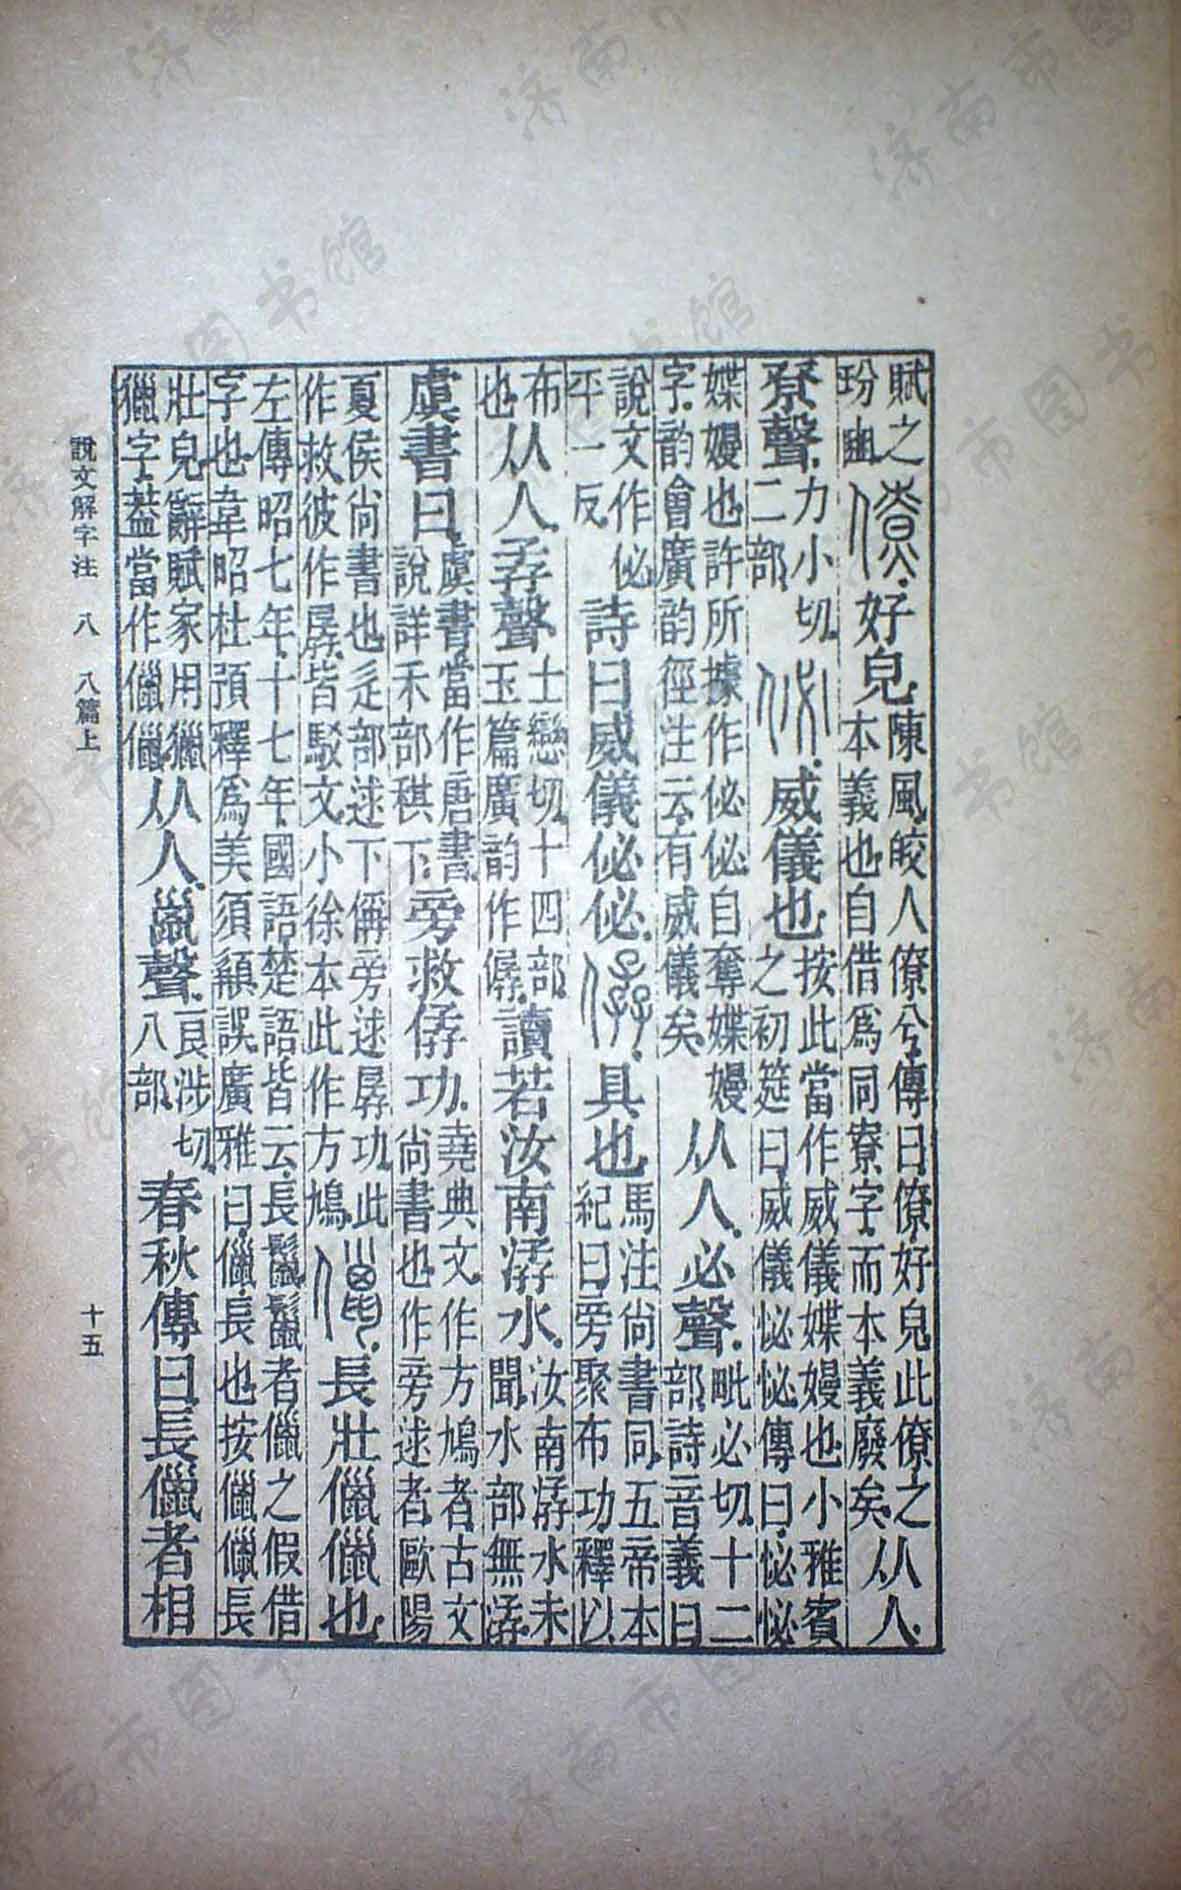 賦之玢豳僚好皃陳風皎人僚兮傳曰僚好皃此僚之本義也自借爲同寮字而本義廢矣从人
尞聲力小切二部佖威儀也按此當作威儀媟嫚也小雅賓之初筵曰威儀怭怭傳曰怭怭
媟嫚也許所據作佖佖自奪媟嫚字韵會廣韵徑注云有威儀矣从人必聲毗必切十二部詩音義曰
說文作佖平一反詩曰威儀佖佖𠊩具也馬注尚書同五帝本紀曰旁聚布功釋以
布也从人孨聲士戀切十四部玉篇廣韵作僝讀若汝南𣹲水汝南𣹲水未聞水部無𣹲
虞書曰虞書當作唐書說詳禾部稘下旁救𠊩功堯典文作方鳩者古文尚書也作旁逑者歐陽
夏侯尚書也辵部逑下偁旁逑孱功此作救彼作孱皆駁文小徐本此作方鳩儠長壯儠儠也
左傳昭七年十七年國語楚語皆云長鬣鬣者儠之假借字也韋昭杜預釋爲美須顅誤廣雅曰儠長也按儠儠長
壯皃辭賦家用獵獵字葢當作儠儠从人巤聲良涉切八部春秋傳曰長儠者相
說文解字注 八 八篇上 十五